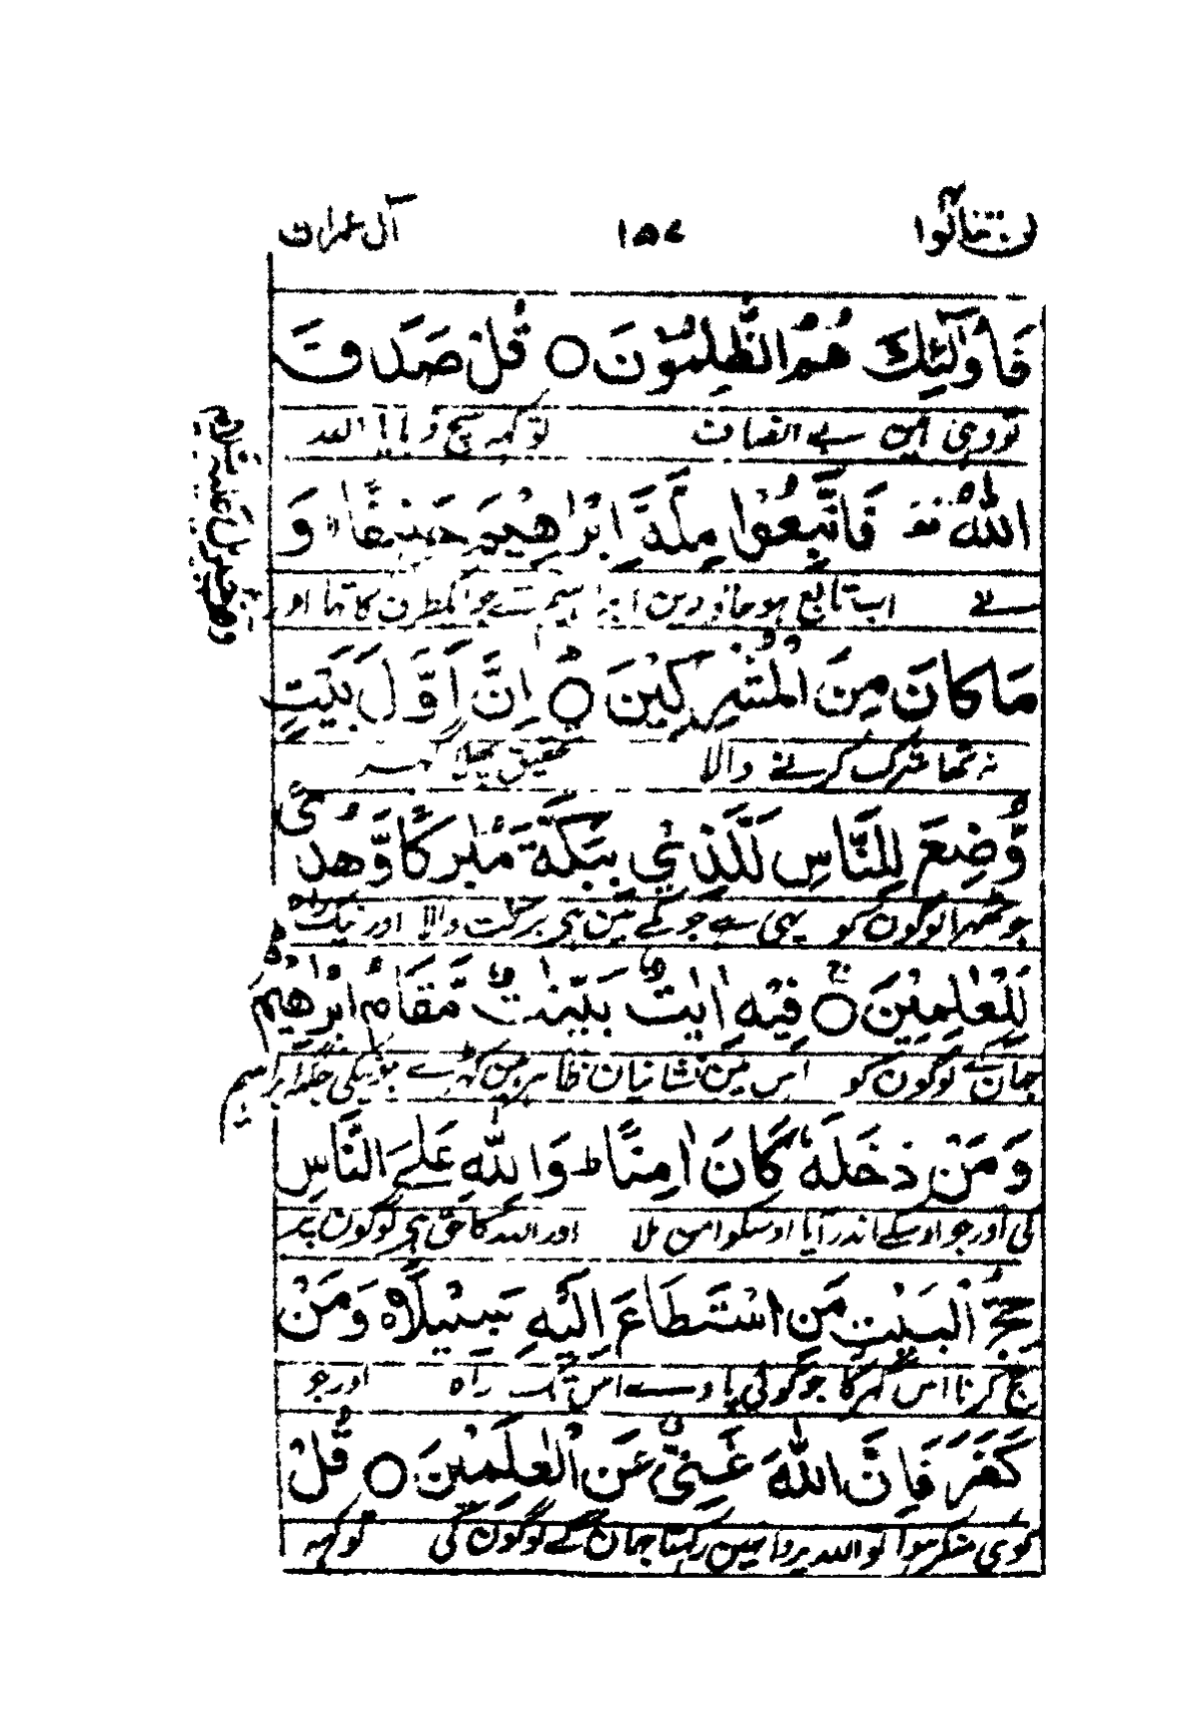 لن تنالوا ۴ ۱۵۷ آل عمران
فَاُولٰٓئِكَ هُمُ الظّٰلِمُوْنَ ○ قُلْ صَدَقَ
تو وہی ہین بے انصاف تو کہہ سچ فرمایا اللہ
اللّٰهُ فَاتَّبِعُوْا مِلَّةَ اِبْرٰهِيْمَ حَنِيْفًا وَ
نے اب تابع ہو جاؤ دین ابراہیم کے جو ایکطرف کا تھا اور
مَا كَانَ مِنَ الْمُشْرِكِيْنَ ○ اِنَّ اَوَّلَ بَيْتٍ
نہ تھا شرک کرنے والا تحقیق پہلا گھر
وُّضِعَ لِلنَّاسِ لَلَّذِيْ بِبَكَّةَ مُبٰرَكًا وَّهُدًى
جو ٹھہرا لوگون کو یہی ہے جو مکے مین ہی برکت والا اور نیک راہ
لِلْعٰلَمِيْنَ ○ فِيْهِ اٰيٰتٌ بَيِّنٰتٌ مَّقَامُ اِبْرٰهِيْمَ
جہان کے لوگون کو اس مین نشانیان ظاہر ہین کھڑے ہونیکی جگہ ابراہیم
وَمَنْ دَخَلَهٗ كَانَ اٰمِنًا ط وَلِلّٰهِ عَلَے النَّاسِ
کی اور جو اوسکے اندر آیا اوسکو امن ملا اور اللہ کا حق ہی لوگون پر
حِجُّ الْبَيْتِ مَنِ اسْتَطَاعَ اِلَيْهِ سَبِيْلًا ہ وَمَنْ
حج کرنا اس گھر کا جو کوئی پاوے اس تک راہ اور جو
كَفَرَ فَاِنَّ اللّٰهَ غَنِيٌّ عَنِ الْعٰلَمِيْنَ ○ قُلْ
کوئی منکر ہوا تو اللہ پروا نہین رکھتا جہان کے لوگون کی تو کہہ